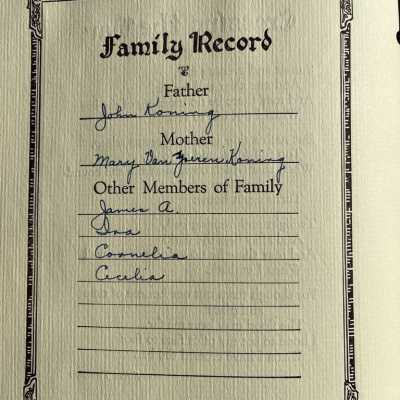 Family Record
Father
John Koning
Mother
Mary Van Zoeren Koning
Other Members of Family
James A.
Ina
Cornelia
Cecelia